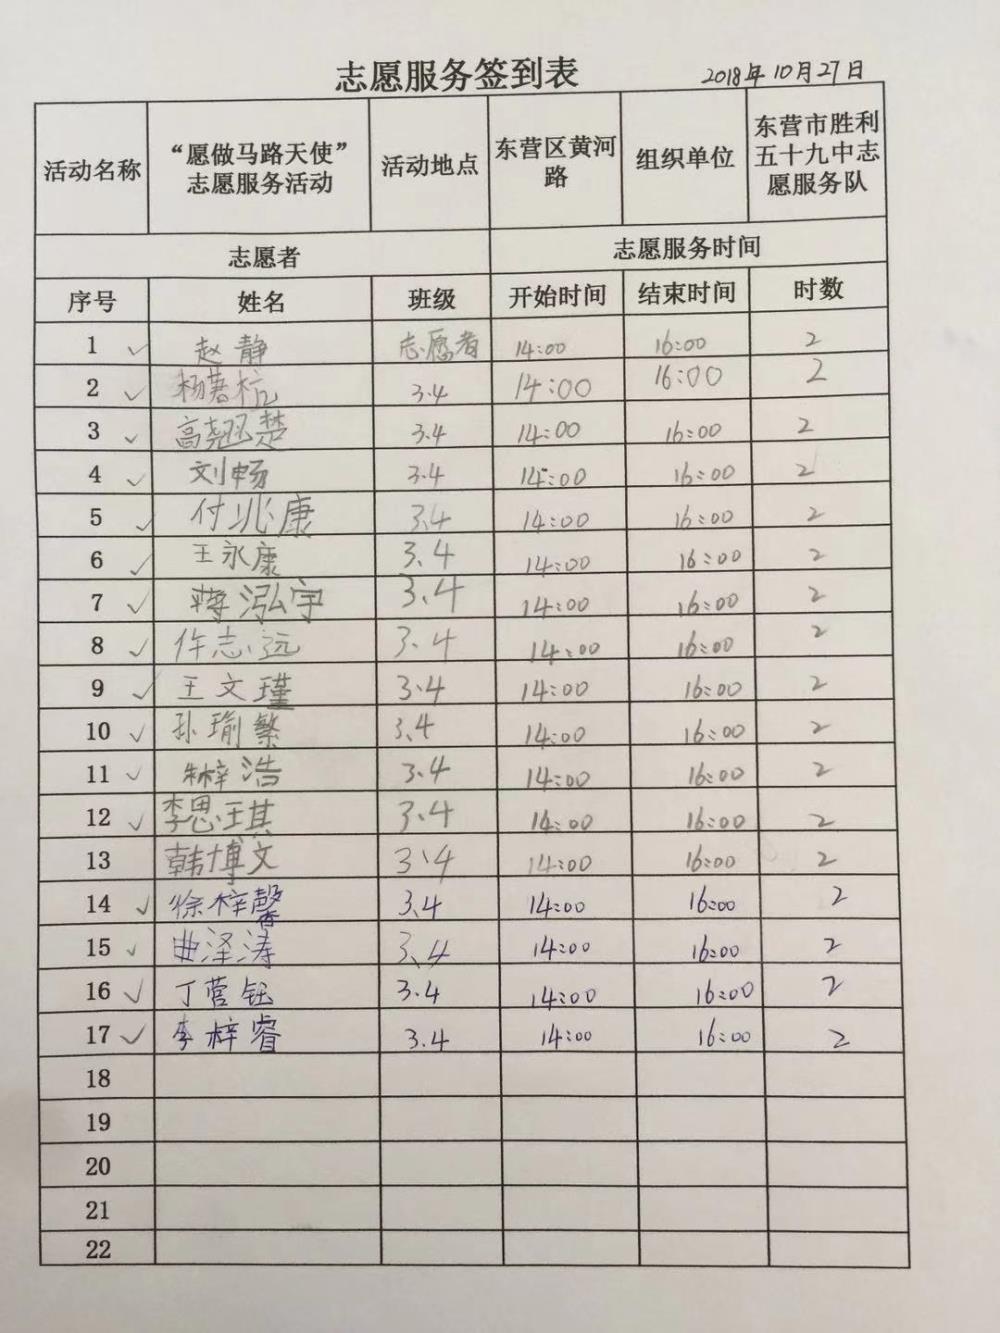 志愿服务签到表
2018年10月27日
活动名称 “愿做马路天使”志愿服务活动 活动地点 东营区黄河路 组织单位 东营市胜利五十九中志愿服务队
志愿者 志愿服务时间
序号 姓名 班级 开始时间 结束时间 时数
1 ✓ 赵静 志愿者 14:00 16:00 2
2 ✓ 3.4 14:00 16:00 2
3 ✓ 3.4 14:00 16:00 2
4 ✓ 刘畅 3.4 14:00 16:00 2
5 ✓ 付兆康 3.4 14:00 16:00 2
6 ✓ 王永康 3.4 14:00 16:00 2
7 ✓ 蒋泓宇 3.4 14:00 16:00 2
8 ✓ 许志远 3.4 14:00 16:00 2
9 ✓ 王文瑾 3.4 14:00 16:00 2
10 ✓ 孙瑜繁 3.4 14:00 16:00 2
11 ✓ 3.4 14:00 16:00 2
12 ✓ 李思琪 3.4 14:00 16:00 2
13 韩博文 3.4 14:00 16:00 2
14 ✓ 徐梓馨 3.4 14:00 16:00 2
15 ✓ 曲泽涛 3.4 14:00 16:00 2
16 ✓ 丁营钰 3.4 14:00 16:00 2
17 ✓ 李梓睿 3.4 14:00 16:00 2
18
19
20
21
22